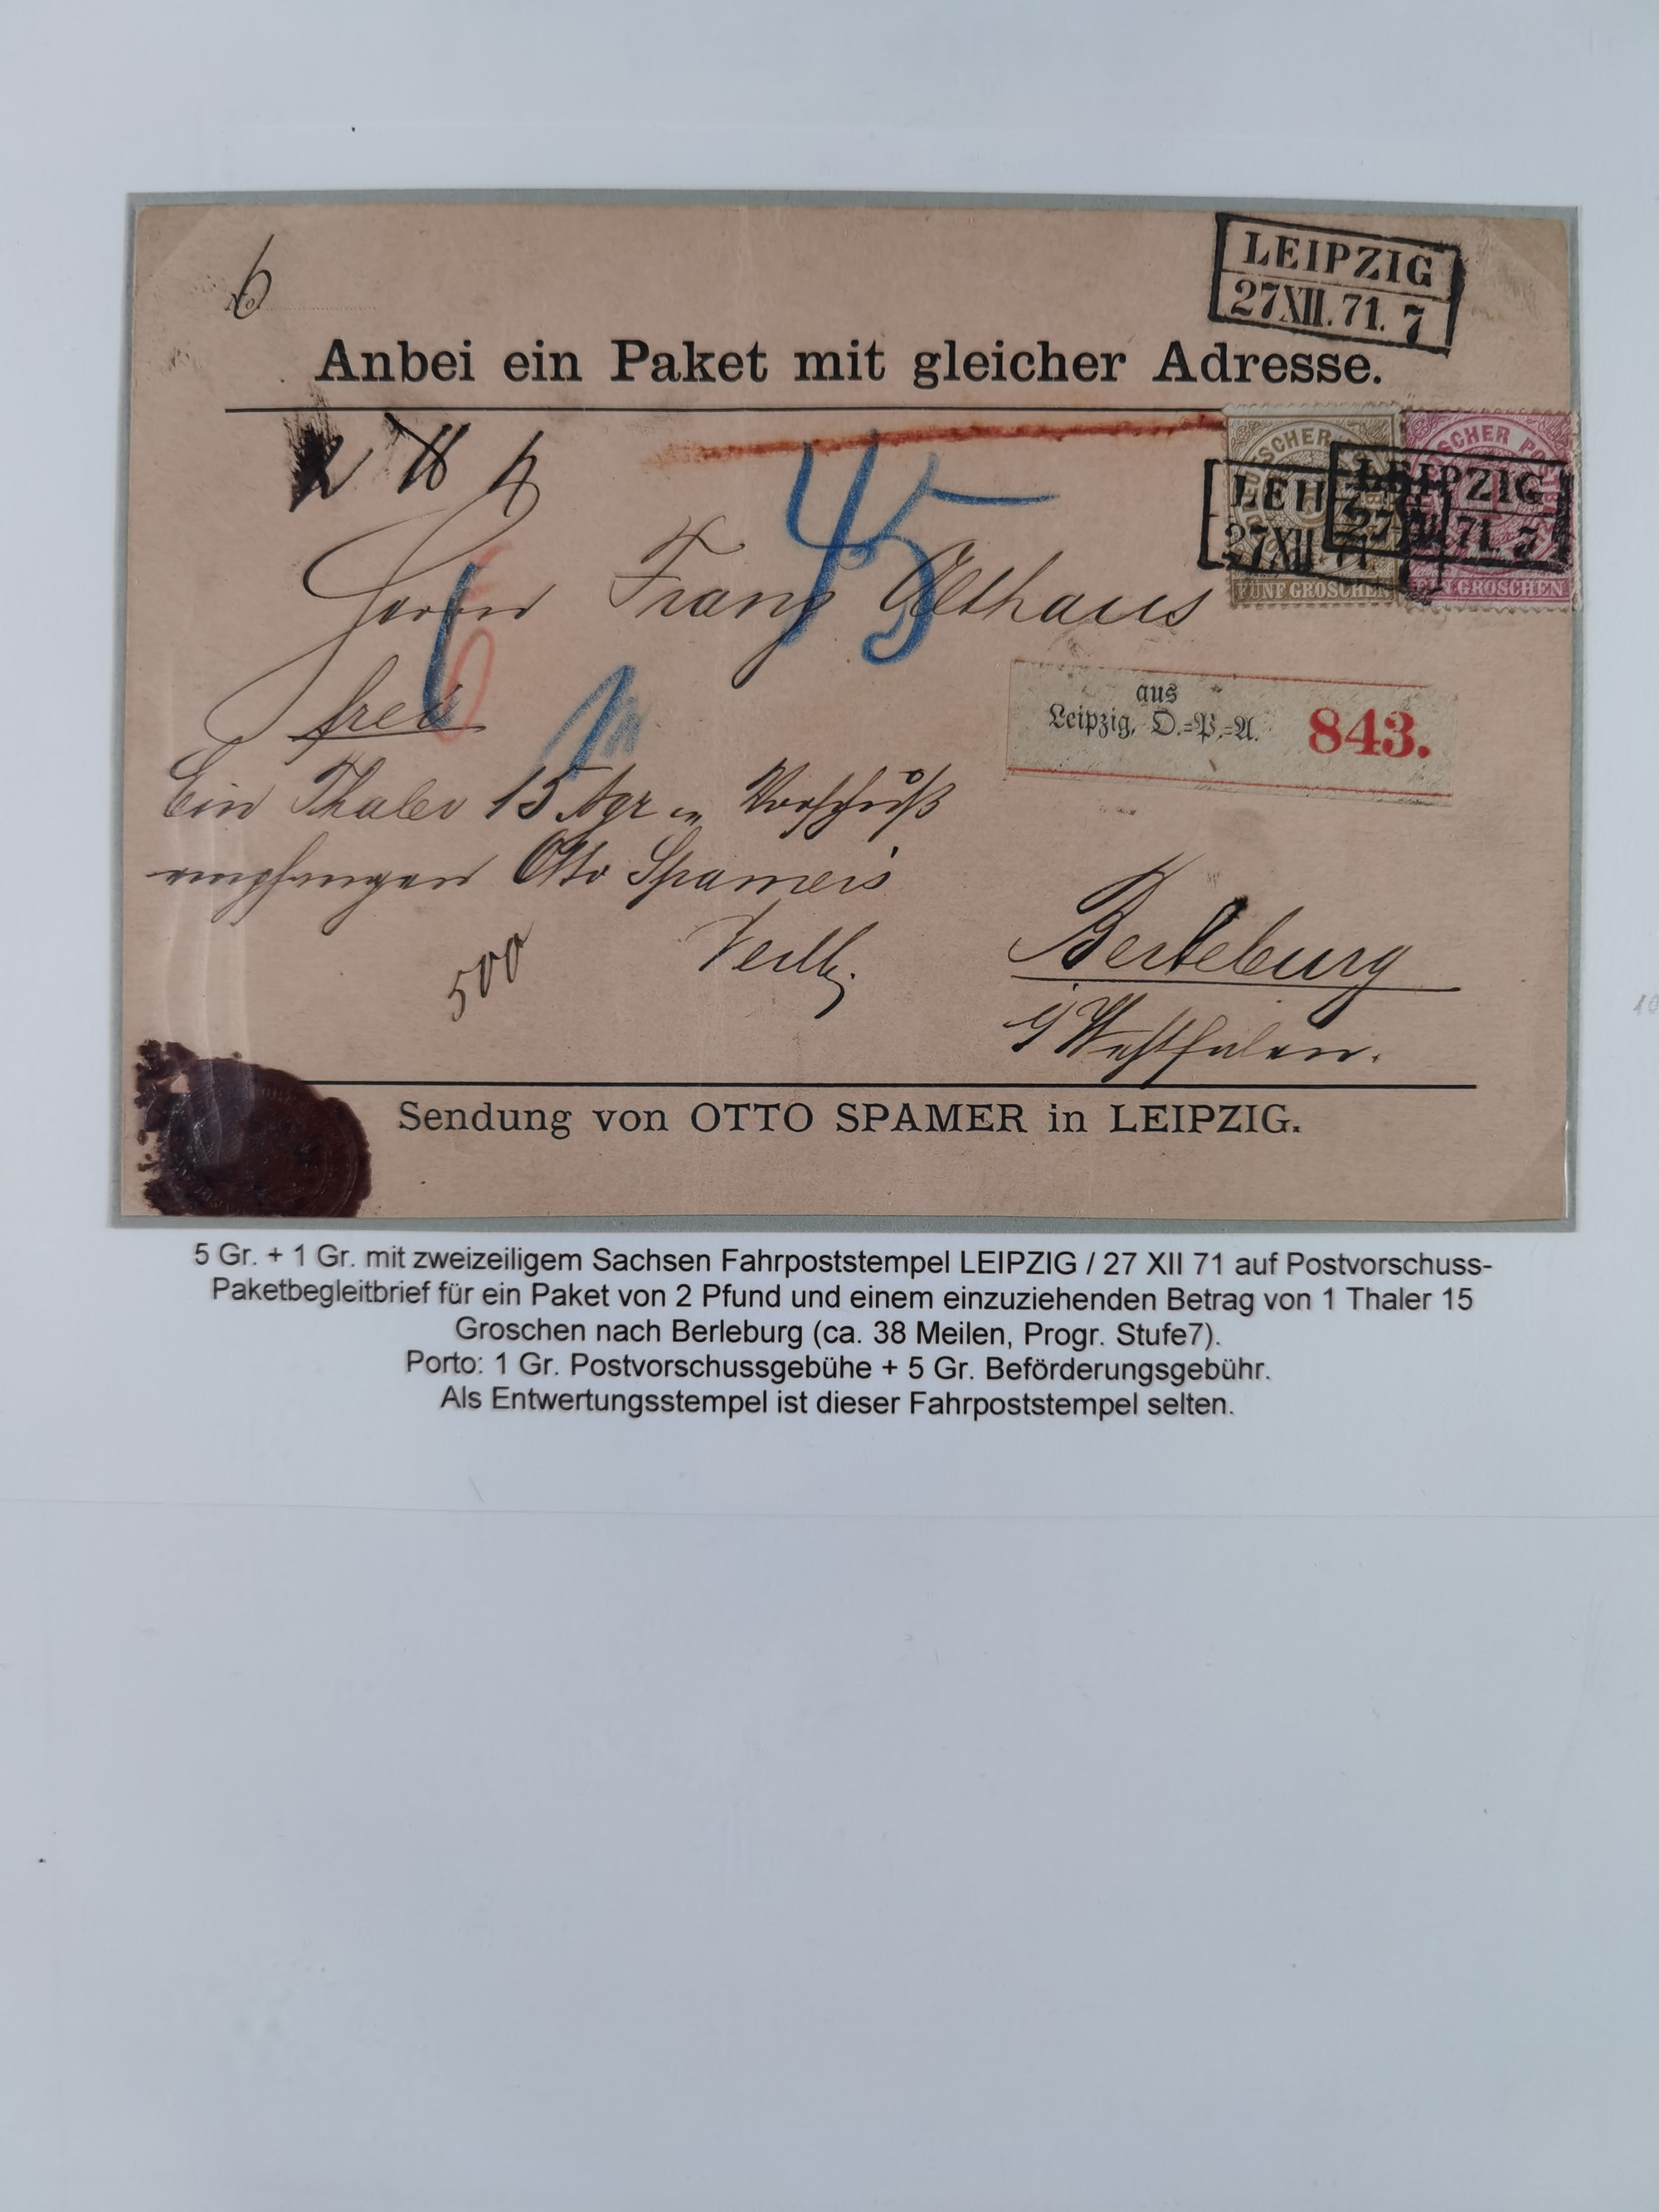 6
No.
LEIPZIG
27 XII. 71. 7
Anbei ein Paket mit gleicher Adresse.
2 ℔
45
DEUTSCHER
FÜNF GROSCHEN
DEUTSCHER POST
EIN GROSCHEN
LEIPZIG
27 XII. 71
LEIPZIG
27 XII 71. 7
Herrn Franz Althaus
6
6
frei
aus
Leipzig, O.-P.-A.
843.
Ein Thaler 15 Ngr Vorschuß
empfangen Otto Spamers
Verlh.
500
Berleburg
i/Westfalen.
Sendung von OTTO SPAMER in LEIPZIG.
5 Gr. + 1 Gr. mit zweizeiligem Sachsen Fahrpoststempel LEIPZIG / 27 XII 71 auf Postvorschuss-
Paketbegleitbrief für ein Paket von 2 Pfund und einem einzuziehenden Betrag von 1 Thaler 15
Groschen nach Berleburg (ca. 38 Meilen, Progr. Stufe7).
Porto: 1 Gr. Postvorschussgebühe + 5 Gr. Beförderungsgebühr.
Als Entwertungsstempel ist dieser Fahrpoststempel selten.